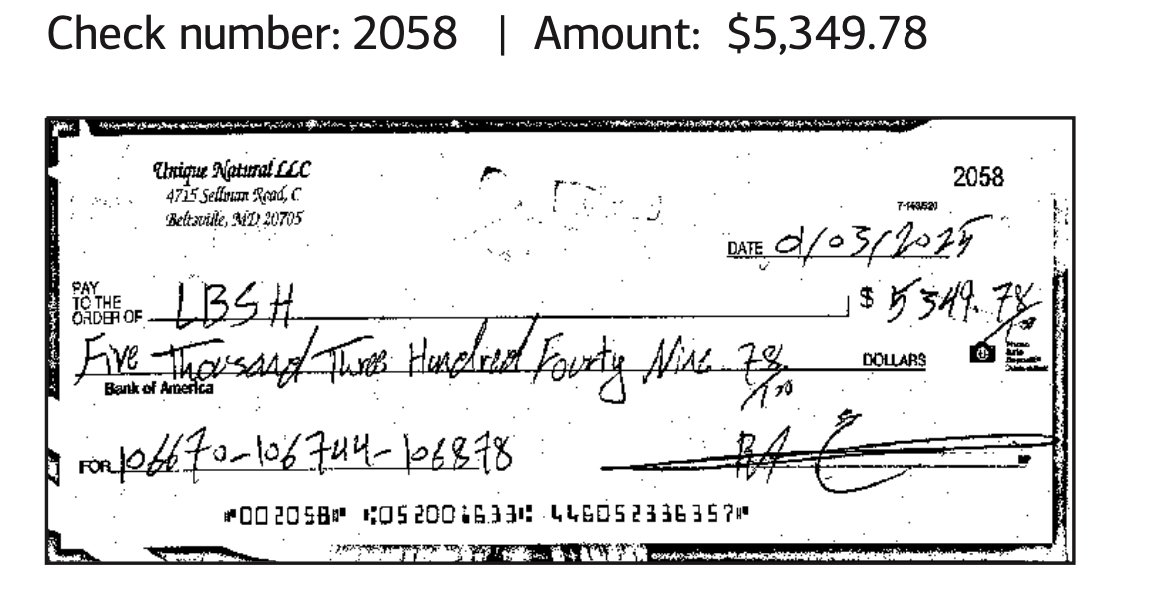 Check number: 2058 | Amount: $5,349.78
Unique Natural LLC
4715 Sellman Road, C
Beltsville, MD 20705
2058
DATE 01/03/2025
PAY TO THE ORDER OF LBSH $ 5349.78/100
Five Thousand Three Hundred Fourty Nine 78/100 DOLLARS
Bank of America
FOR 106670-106744-106878
⑈002058⑈ ⑆052001633⑆ 446052336357⑈